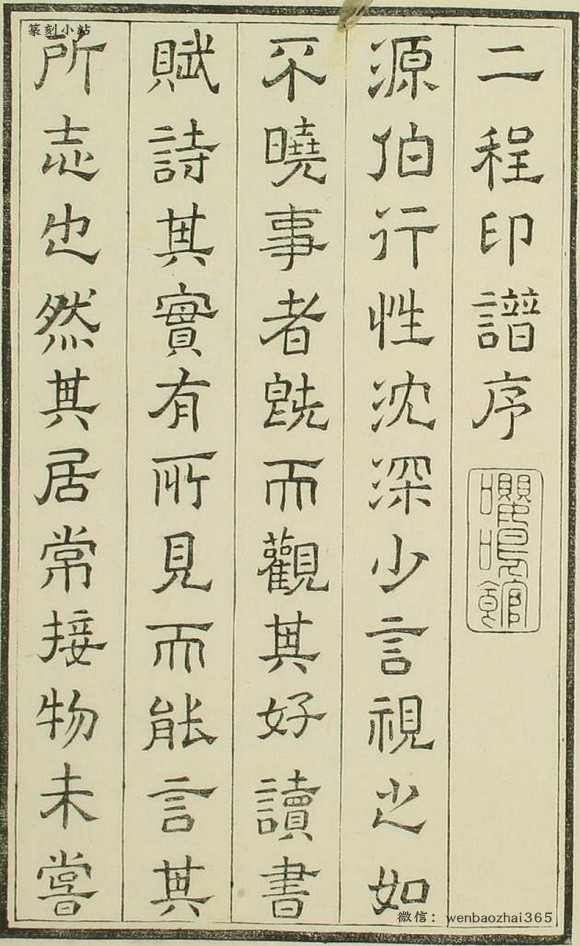 二程印譜序
嚶鳴館
源伯行性沈深少言視之如
不曉事者旣而觀其好讀書
賦詩其實有所見而能言其
所志也然其居常接物未嘗
篆刻小站
微信：wenbaozhai365